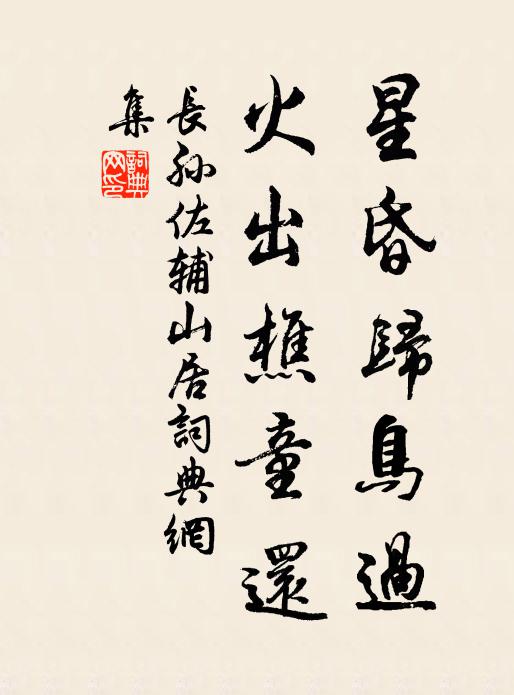 星昏歸鳥過
火出樵童還
長孫佐辅山居詞典網
集
詞典
网印